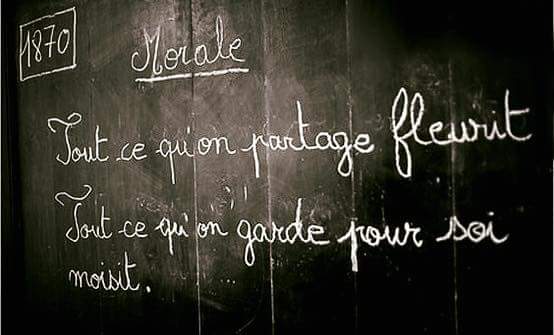 1870
Morale
Tout ce qu'on partage fleurit
Tout ce qu'on garde pour soi
moisit.